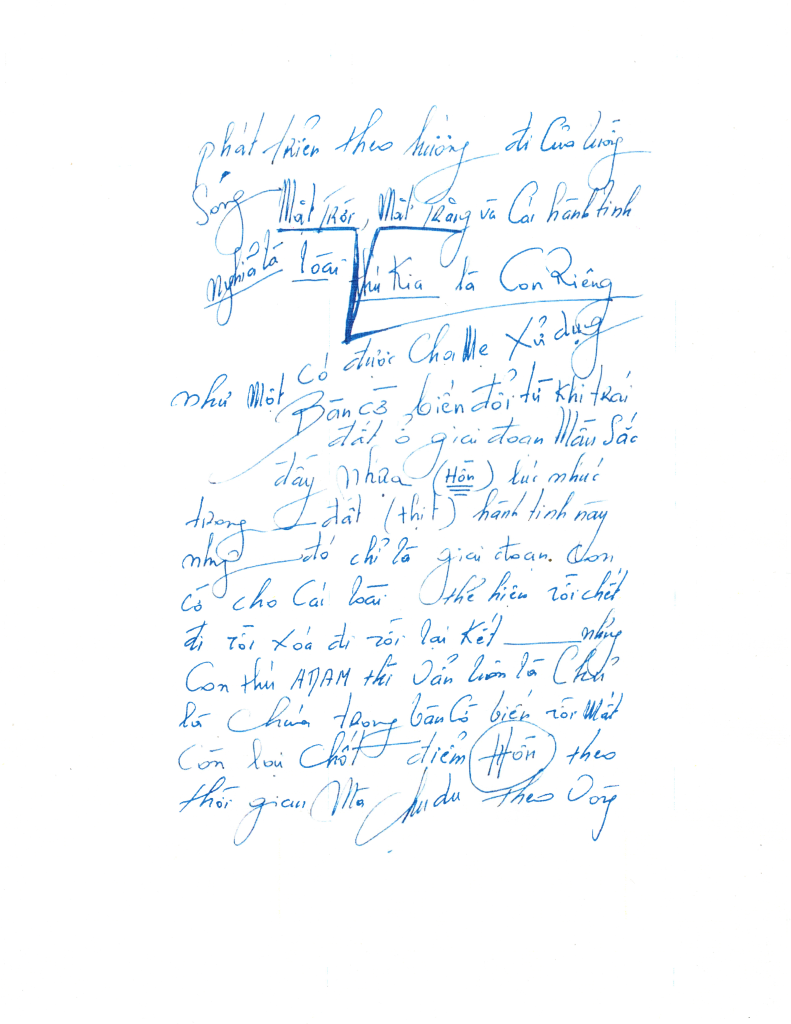 phát triển theo hướng đi Của luồng
Sóng Mặt Trời, Mặt Trăng và Cái hành tinh
Nghĩa là loài thú Kia là Con Riêng
Có được Cha Mẹ Xử dụng
như Một Bàn Cờ biến đổi từ Khi trái
đất ở giai đoạn Mầu Sắc
đầy nhựa (Hồn) lúc nhúc
trong đất (thịt) hành tinh này
nhưg đó chỉ là giai đoạn. Còn
có cho Cái loài thể hiện rồi chết
đi rồi xóa đi rồi lại Kết nhưg
Con thú ADAM thì Vẫn luôn là Chủ
là Chúa trong bàn Cờ biến rồi Mất
Còn lại Chốt điểm Hồn theo
thời gian Mà Chu du theo Vòng